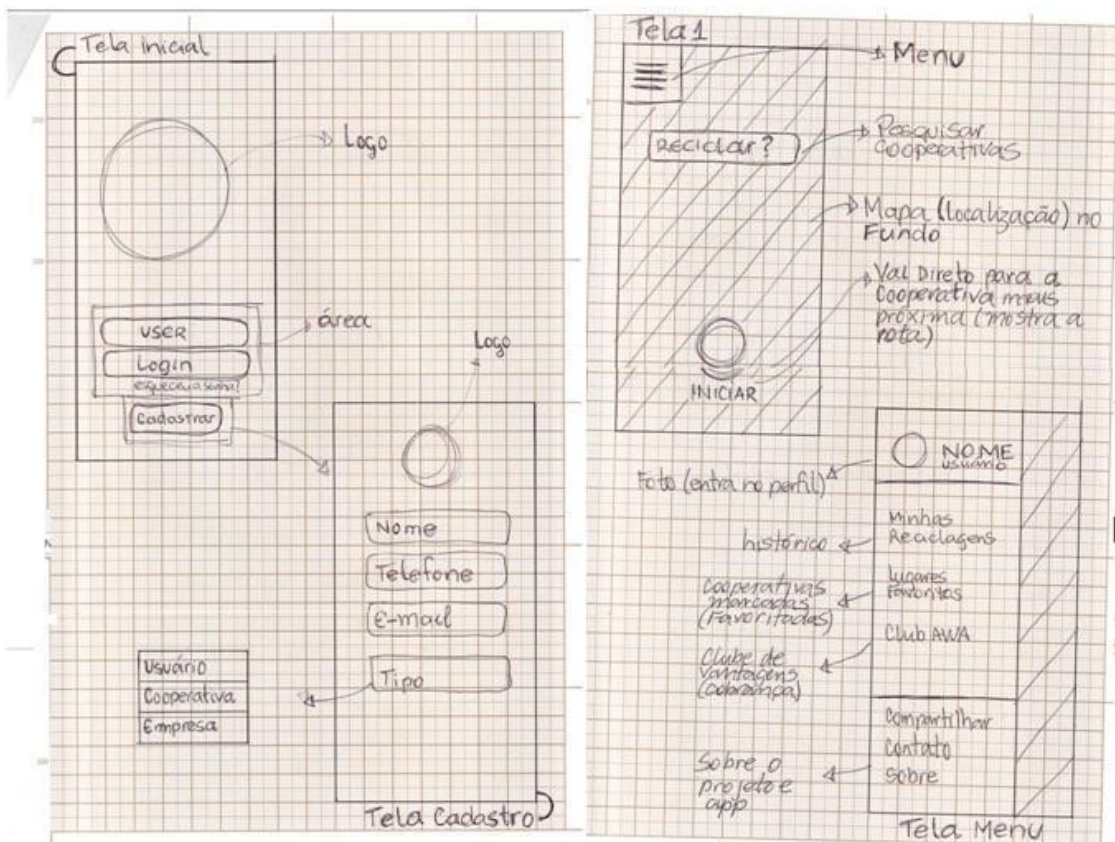 Tela inicial
Logo
USER
área
Login
esqueceu a senha?
Cadastrar
Logo
Nome
Telefone
E-mail
Tipo
Usuário
Cooperativa
Empresa
Tela Cadastro
Tela 1
Menu
RECICLAR?
Pesquisar
Cooperativas
Mapa (localização) no
Fundo
Vai Direto para a
Cooperativa mais
próxima (mostra a
rota)
INICIAR
NOME
USUÁRIO
Foto (entra no perfil)
Minhas
Reciclagens
histórico
Lugares
Favoritos
Cooperativas
marcadas
(Favoritadas)
Club AWA
Clube de
Vantagens
(cobrança)
Compartilhar
Contato
Sobre
Sobre o
projeto e
app
Tela Menu